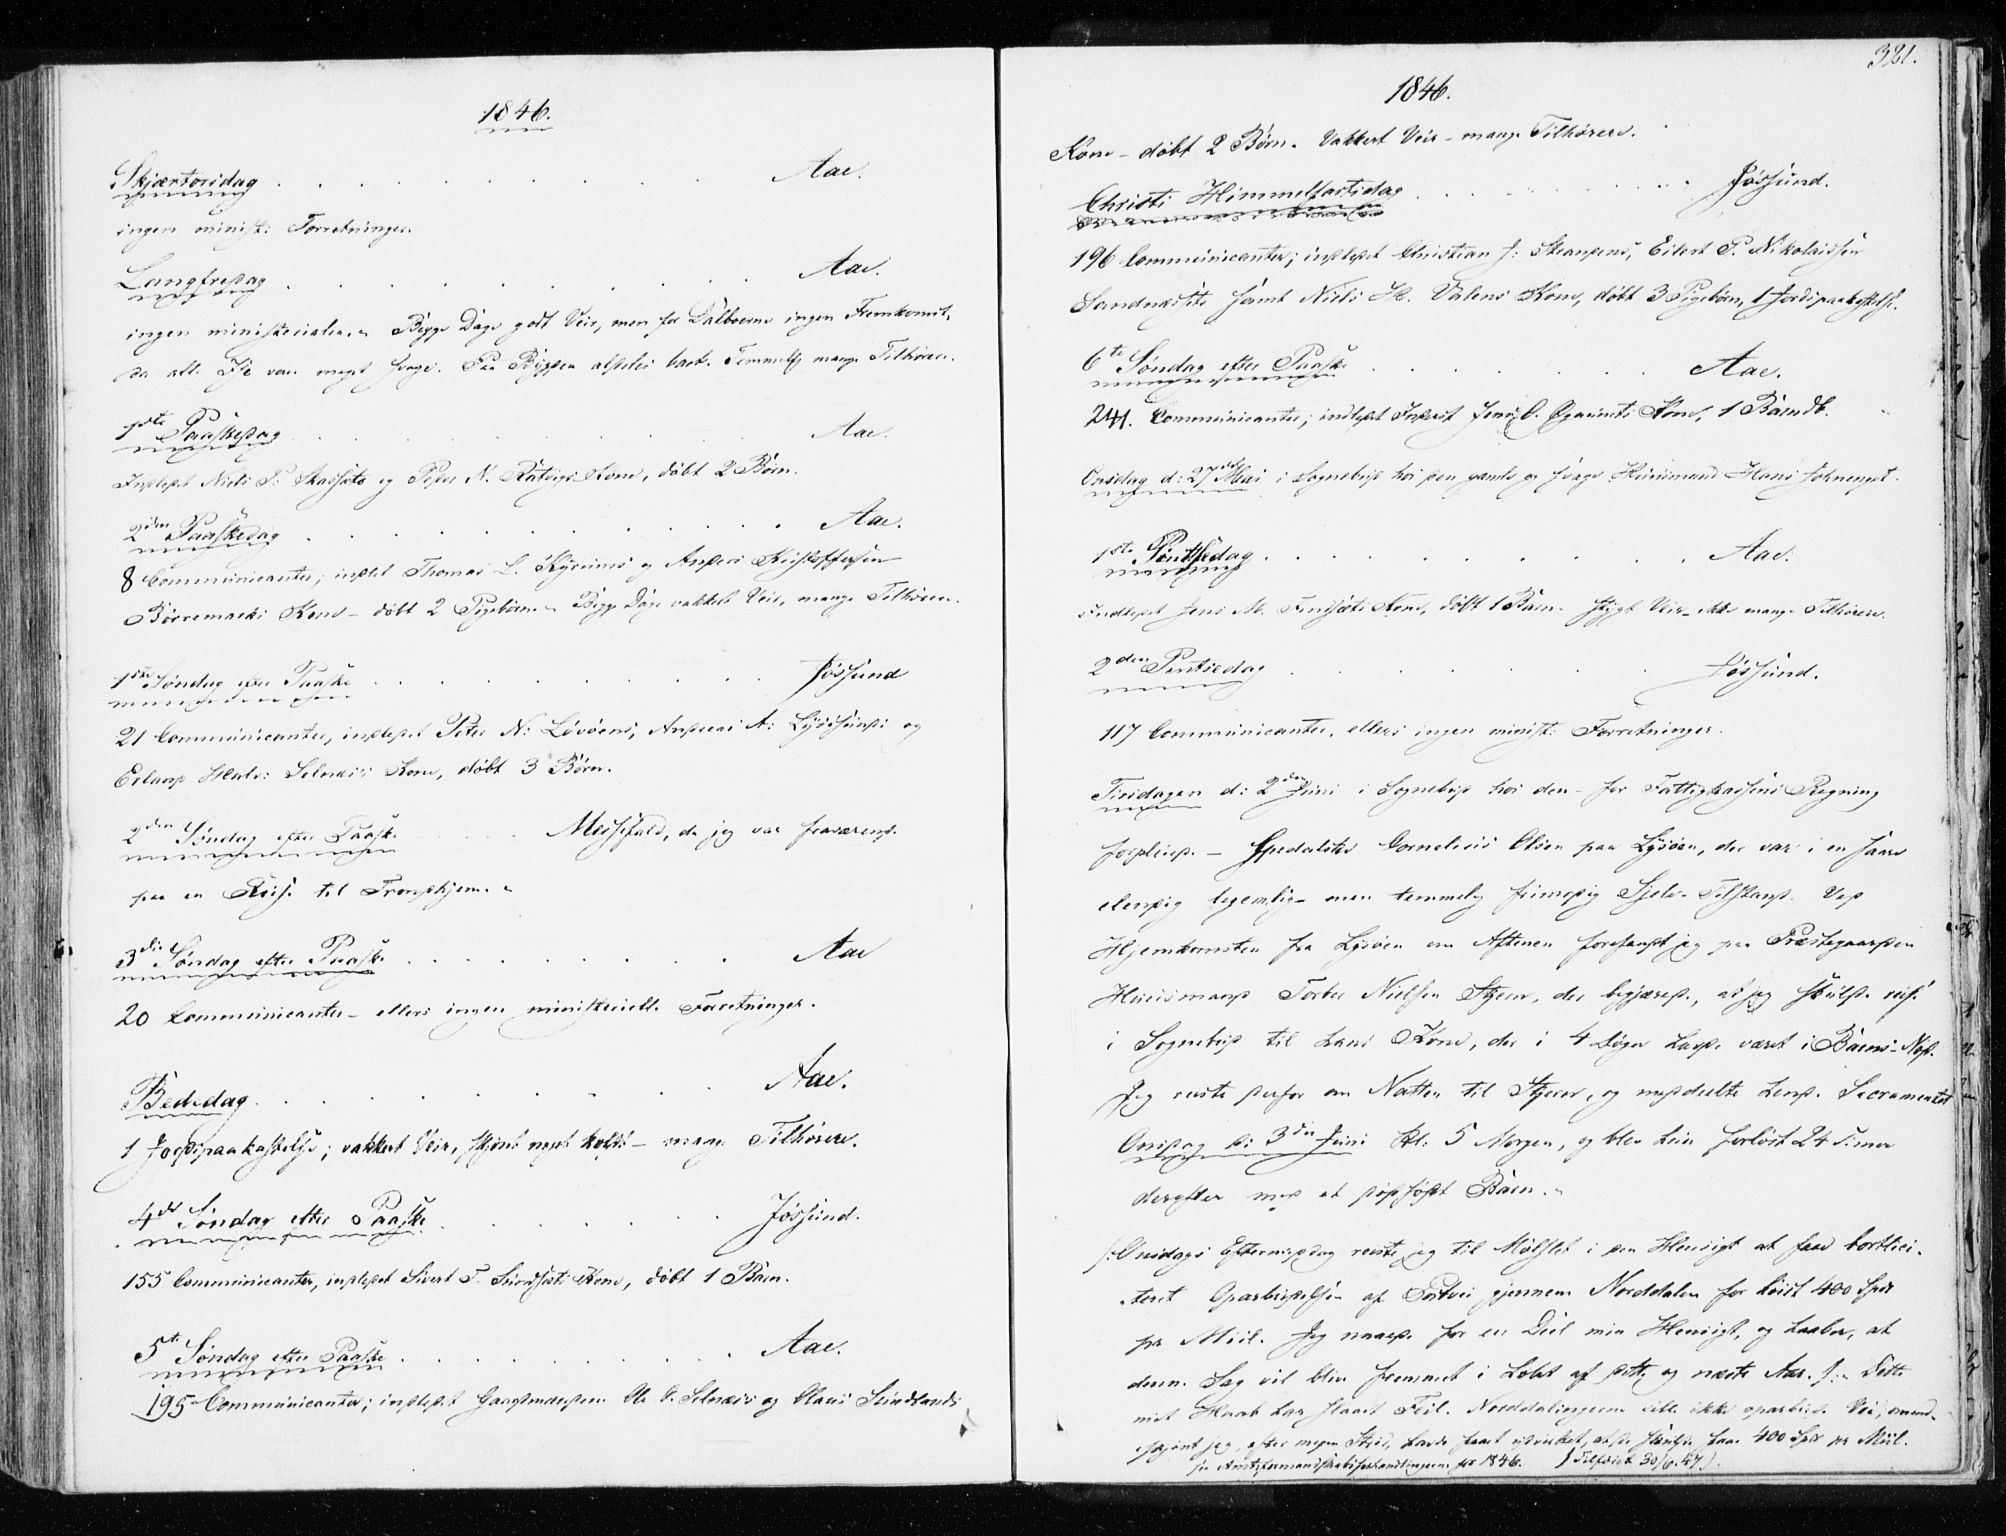 1846.
Skjærtorsdag . . . . . . . . . . Aae.
ingen minist: Forretninger.
Langfredag . . . . . . . . . . Aae.
ingen ministerialia. Begge Dage godt Veir, men for Dalboerne ingen Fremkomst,
da all Iis var meget svag. Paa Bygden aldeles bart. Temmelig mange Tilhørere.
1ste Paaskedag . . . . . . . . . . Aae.
Indledet Niels P. og Peder N. Kone, døbt 2 Børn.
2den Paaskedag . . . . . . . . . . Aae.
8 Communicanter; indledet Thomas L. og Anders Kristoffersen
Børremarks Kone - døbt 2 Pigebørn. Begge Dage vakkert Veir, mange Tilhørere.
1ste Søndag efter Paaske . . . . . . . . . . Jøssund
21 Communicanter, indledet Peter N: Løvøens, Andreas A: Lysøsunds og
Erland Halv: Selnæss Kone, døbt 3 Børn.
2den Søndag efter Paaske . . . Messefald, da jeg var fraværende
paa en Reise til Trondhjem.
3die Søndag efter Paaske . . . . . . . . . . Aae
20 Communicanter - ellers ingen ministerielle Forretninger.
Bededag . . . . . . . . . . Aae.
1 Jordspaakastelse; vakkert Veir, skjønt noget koldt - mange Tilhørere.
4de Søndag efter Paaske . . . . . . . . . . Jøssund.
155 Communicanter, indledet Sivert T. Kone, døbt 1 Barn.
5te Søndag efter Paaske . . . . . . . . . . Aae.
195 Communicanter; indledet Gaardmanden Ole O. Selnæss og Claus Sundlands
321.
1846.
Kone - døbt 2 Børn. Vakkert Veir - mange Tilhørere.
Christi Himmelfartsdag . . . . . . . . . . Jøssund.
196 Communicanter; indledet Christian J: Eilert P. Nikolaissen
Sandnæssets samt Niels H. Valens Kone, døbt 3 Pigebørn, 1 Jordspaakastelse.
6te Søndag efter Paaske . . . . . . . . . . Aae.
241. Communicanter; indledet Jens O. Kone, 1 Barnedb.
Onsdag d: 27de Mai i Sognebud hos den gamle og svage Huusmand Hans
1ste Pintsedag . . . . . . . . . . Aae.
Indledet Jens M. Kone, døbt 1 Barn. Stygt Veir - ikke mange Tilhørere.
2den Pintsedag . . . . . . . . . . Jøssund.
117 Communicanter, ellers ingen minist: Forretninger.
Tirsdagen d: 2den Juni i Sognebud hos den - for Fattigkassens Regning
forpleiede - Spedalske Cornelius Olsen paa Lysøen, der var i en saare
elendig legemlig - men temmelig fornøielig Sjels-Tilstand. Ved
Hjemkomsten fra Lysøen om Aftenen forefandt jeg paa Præstegaarden
Huusmand Torber Nielsen Stjern, der begjærede, at jeg skulde reise
i Sognebud til hans Kone, der i 4 Døgn havde været i Barns-Nød.
Jeg reiste derfor om Natten til Stjern, og meddeelte hende Sacramentet
Onsdag d: 3die Juni Kl: 5 Morgen, og blev hun forløst 24 Timer
derefter med et dødfødt Barn.
/: Onsdags Eftermiddag reiste jeg til Mølslet i den Hensigt at faae bortlici-
-teret Oparbeidelsen af Postvei gjennem Norddalen for høist 400 Spd
pr Miil. Jeg naaede for en Deel min Hensigt, og haaber, at
denne Sag vil blive fremmet i Løbet af dette og næste Aar. :/ Dette
mit Haab har slaaet Feil. Norddalingerne ville ikke oparbeide Vei, uagtet
skjønt jeg, efter megen Strid, havde faaet udvirket, at de skulde faae 400 Spd pr Miil.
se Amtsformandskabsforhandlingerne for 1846. (Tilføiet 30/6 47).